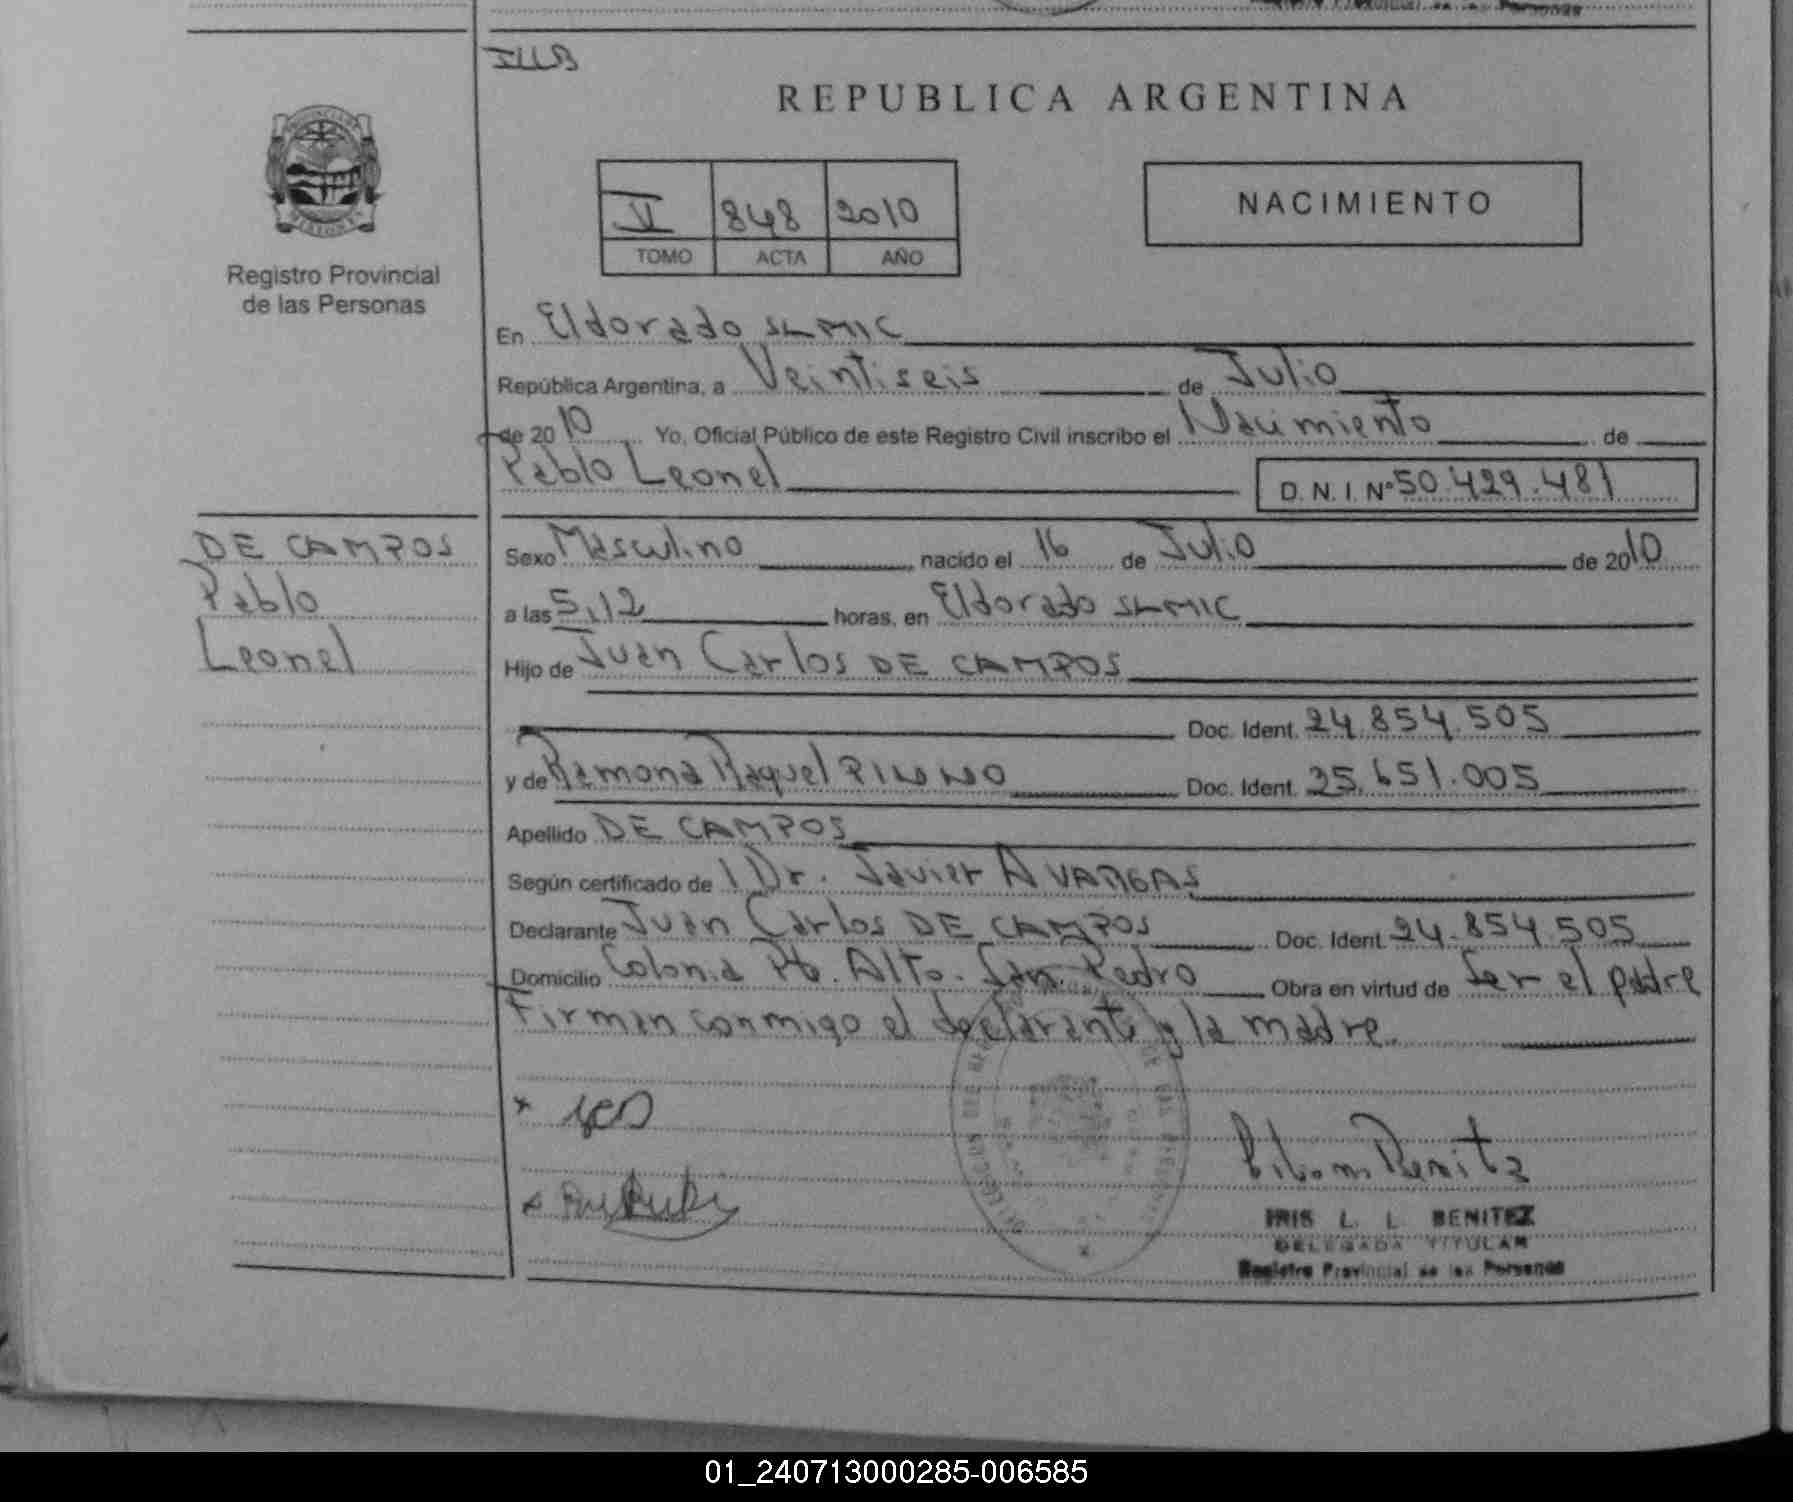 ILLB
REPUBLICA ARGENTINA
V 848 2010
TOMO ACTA AÑO
NACIMIENTO
Registro Provincial
de las Personas
En Eldorado SLMIC
República Argentina, a Veintiseis de Julio
de 2010 Yo, Oficial Público de este Registro Civil inscribo el Nacimiento de
Pablo Leonel D.N.I. Nº 50.429.481
DE CAMPOS
Pablo
Leonel
Sexo Masculino nacido el 16 de Julio de 2010
a las 5,12 horas, en Eldorado SLMIC
Hijo de Juan Carlos DE CAMPOS
Doc. Ident. 24.854.505
y de Ramona Raquel Doc. Ident. 25.651.005
Apellido DE CAMPOS
Según certificado de Dr. Javier A VARGAS
Declarante Juan Carlos DE CAMPOS Doc. Ident. 24.854.505
Domicilio Colonia Pto. Alto. San Pedro Obra en virtud de Ser el padre
Firman conmigo el declarante y la madre.
IRIS L. L. BENITEZ
DELEGADA TITULAR
Registro Provincial de las Personas
01_240713000285-006585